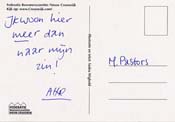 Federatie Bewonerscomités Nieuw Crooswijk
Kijk op: www.Crooswijk.com
Ik woon hier
meer dan
naar mijn
zin!
M. Pastors